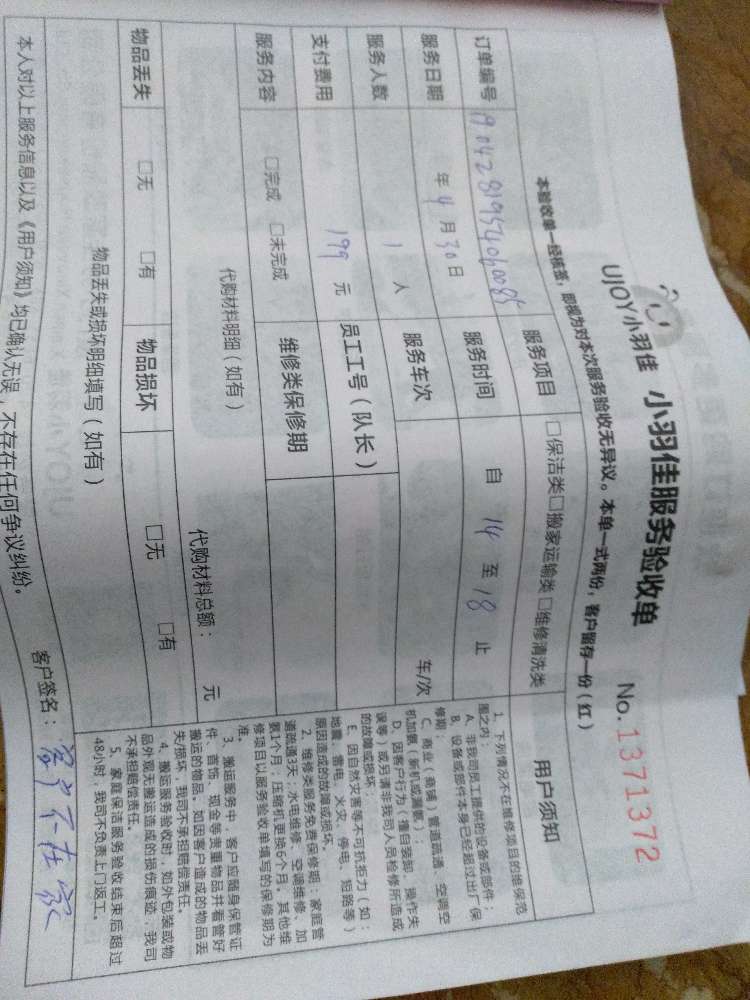 UJOY小羽佳 小羽佳服务验收单 No.1371372
本验收单一经核签，即视为对本次服务验收无异议。本单一式两份，客户留存一份（红）
订单编号 服务项目 □保洁类□搬家运输类□维修清洗类
服务日期 年 4 月 30 日 服务时间 自 14 至 18 止
服务人数 1 人 服务车次 车/次
支付费用 199 元 员工工号（队长）
服务内容 □完成 □未完成 维修类保修期
代购材料明细（如有） 代购材料总额： 元
物品丢失 □无 □有 物品损坏 □无 □有
物品丢失或损坏明细填写（如有）
本人对以上服务信息以及《用户须知》均已确认无误，不存在任何争议纠纷。 客户签名：客户不在家
用户须知
1、下列情况不在维修项目的维保范
围之内：
A、非我司员工提供的设备或部件；
B、设备或部件本身已经超过出厂保
修期；
C、商业（商铺）管道疏通、空调空
机加氨（新机或漏氨）；
D、因客户行为（擅自装卸、操作失
误等）或另请非我司人员检修所造成
的故障或损坏.
E、因自然灾害等不可抗拒力（如：
地震、雷电、火灾、停电、短路等）
原因造成的故障或损坏。
2、维修类服务免费保修期：家庭管
道疏通3天；水电维修、空调维修、加
氨1个月；压缩机更换6个月。其他维
修项目以服务验收单填写的保修期为
准。
3、搬运服务中，客户应随身保管证
件、首饰、现金等贵重物品并看管好
搬运的物品。如因客户造成的物品丢
失/损坏，我司不承担赔偿责任。
4、搬运服务验收时，如外包装或物
品外观无搬运造成的损伤痕迹，我司
不承担赔偿责任。
5、家庭保洁服务验收结束后超过
48小时，我司不负责上门返工。